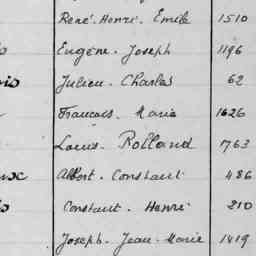 René. Henri. Emile 1510
Eugène. Joseph 1196
Julien. Charles 62
Francois. Marie 1626
Louis. Rolland 1763
Albert. Constant 486
Constant. Henri 210
Joseph. Jean. Marie 1419